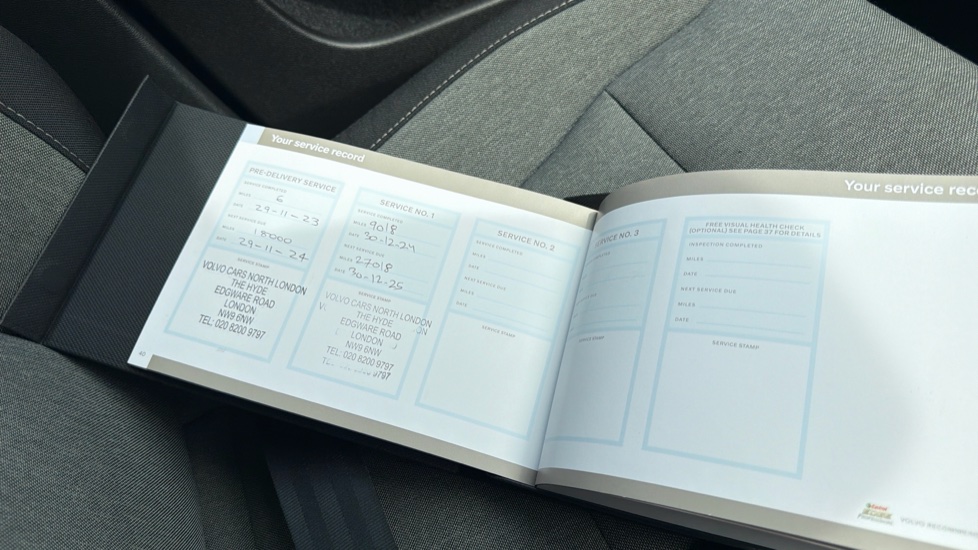 Your service record
PRE-DELIVERY SERVICE
SERVICE COMPLETED
MILES 6
DATE 29-11-23
NEXT SERVICE DUE
MILES 18000
DATE 29-11-24
SERVICE STAMP
VOLVO CARS NORTH LONDON
THE HYDE
EDGWARE ROAD
LONDON
NW9 6NW
TEL: 020 8200 9797
40
SERVICE NO. 1
SERVICE COMPLETED
MILES 9018
DATE 30-12-24
NEXT SERVICE DUE
MILES 27018
DATE 30-12-25
SERVICE STAMP
VOLVO CARS NORTH LONDON
THE HYDE
EDGWARE ROAD
LONDON
NW9 6NW
TEL: 020 8200 9797
9797
SERVICE NO. 2
SERVICE COMPLETED
MILES
DATE
NEXT SERVICE DUE
MILES
DATE
SERVICE STAMP
Your service rec
SERVICE NO. 3
SERVICE STAMP
FREE VISUAL HEALTH CHECK
(OPTIONAL) SEE PAGE 37 FOR DETAILS
INSPECTION COMPLETED
MILES
DATE
NEXT SERVICE DUE
MILES
DATE
SERVICE STAMP
Castrol
EDGE
VOLVO RECOMME